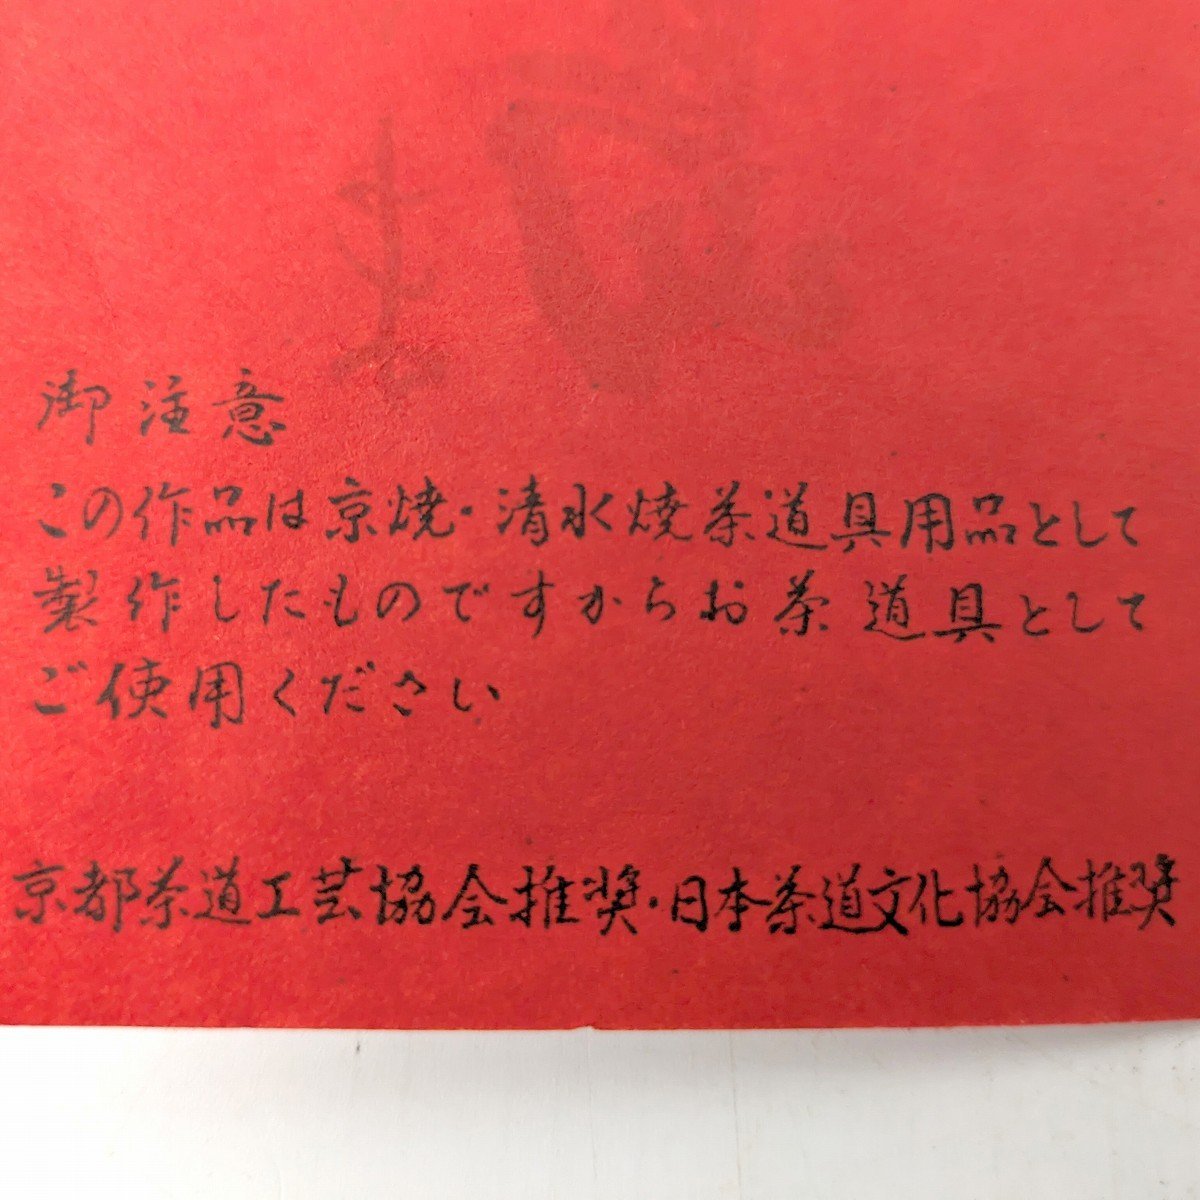 御注意
この作品は京焼・清水焼茶道具用品として
製作したものですからお茶道具として
ご使用ください
京都茶道工芸協会推奨・日本茶道文化協会推奨